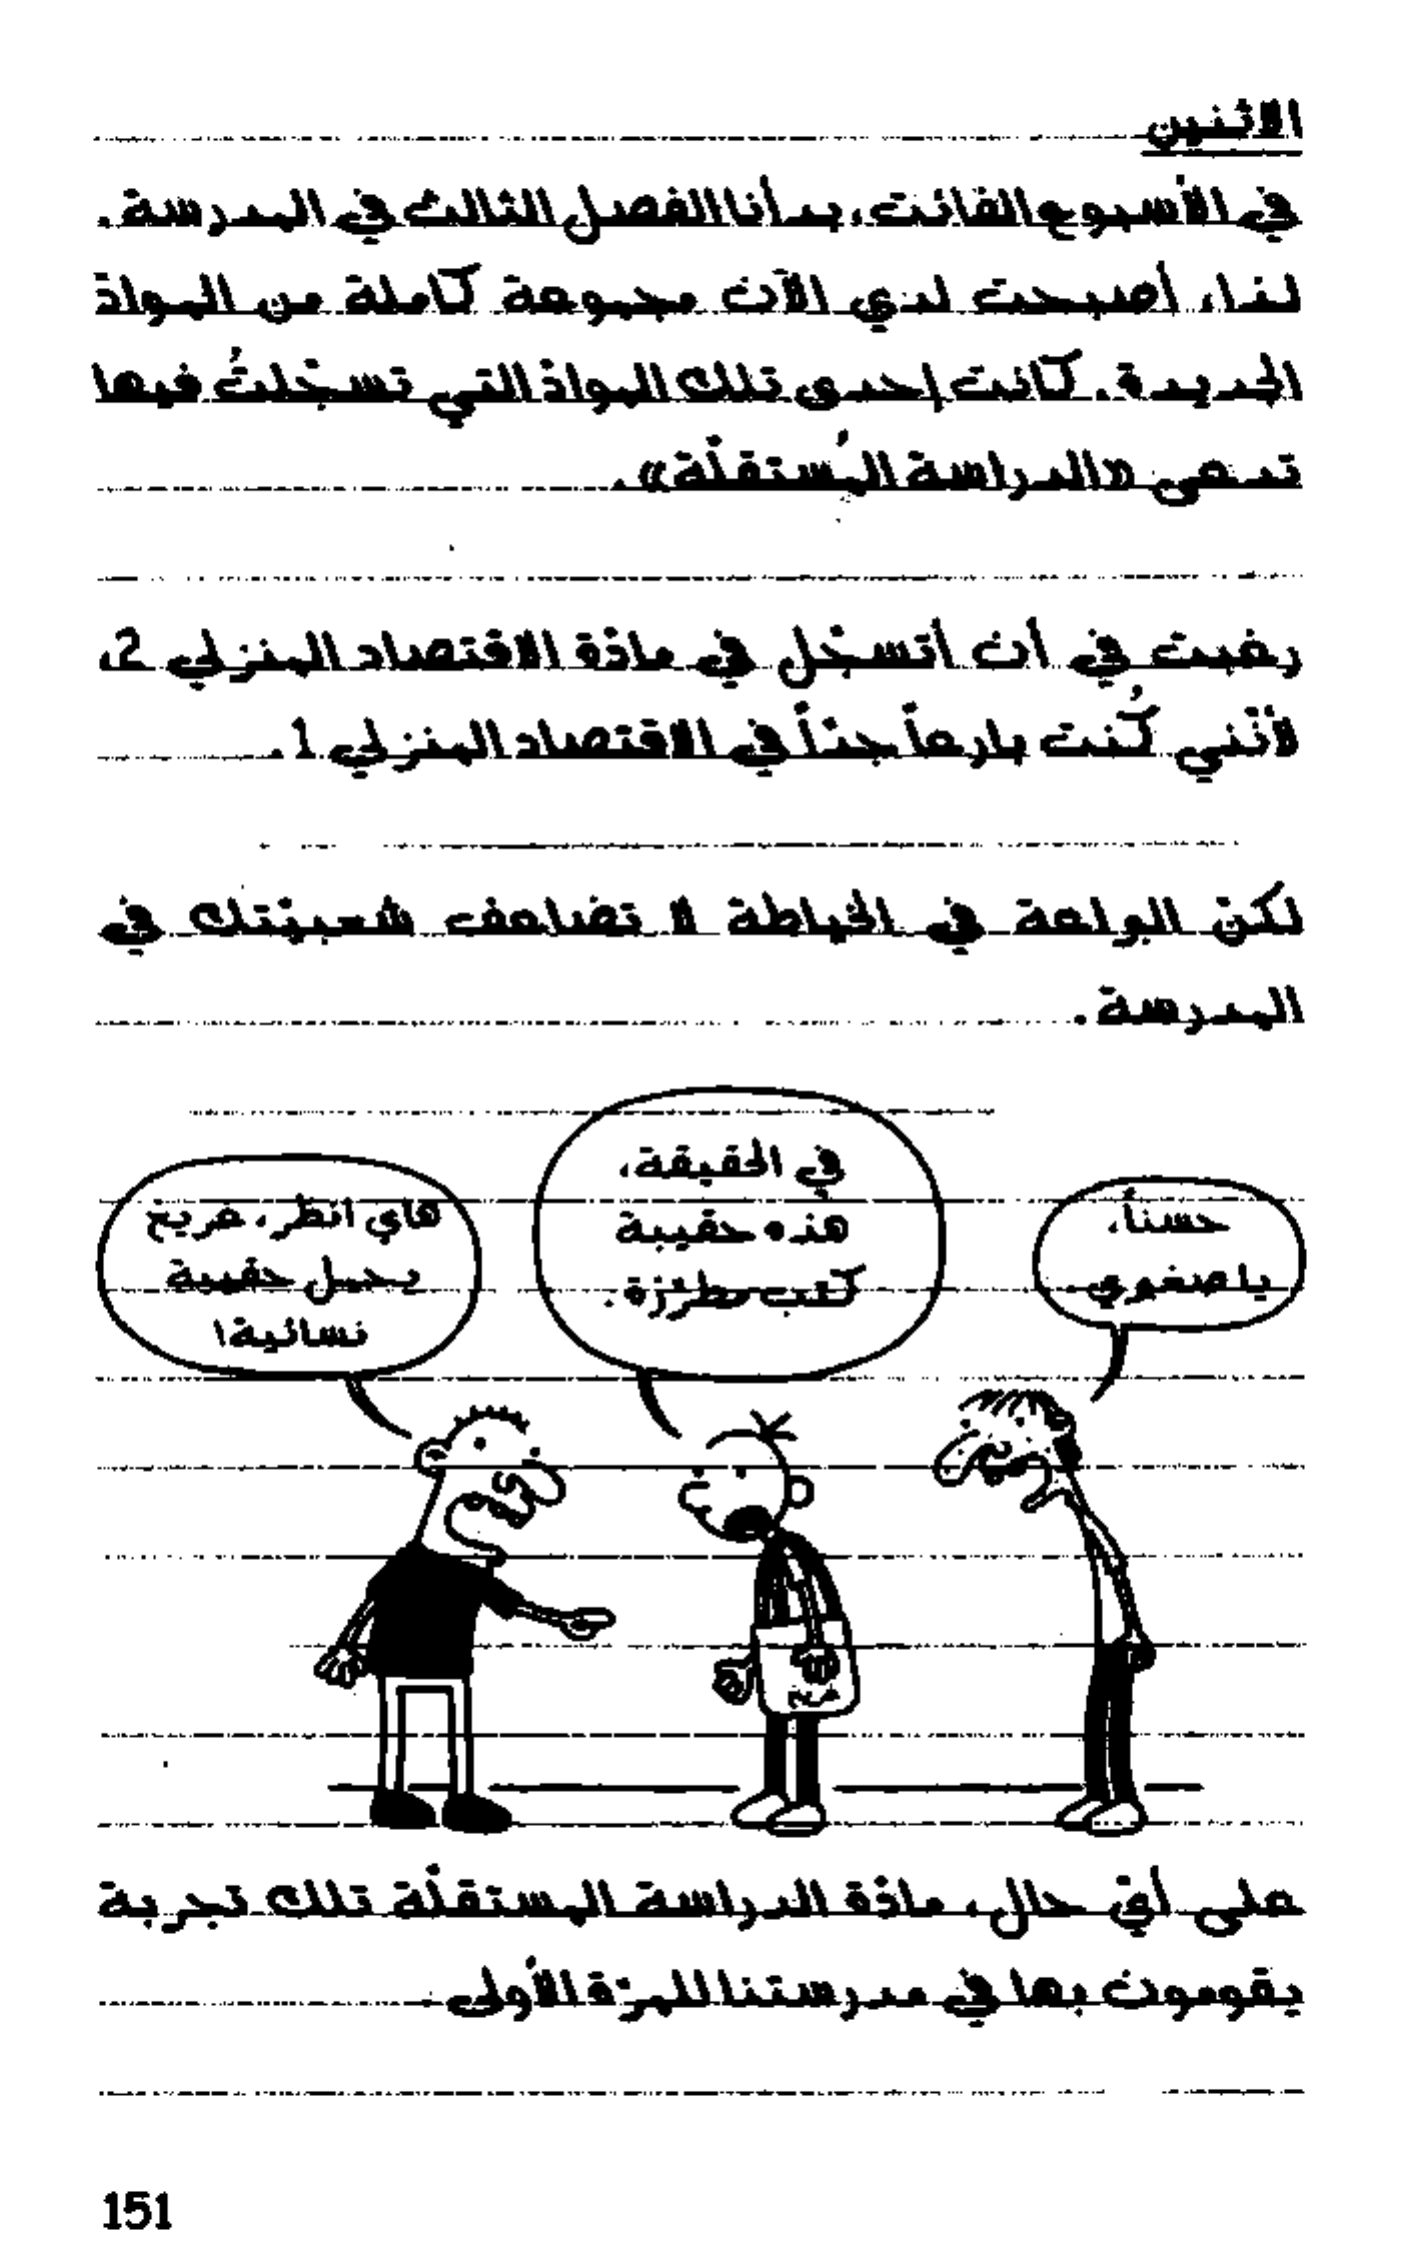 الاثنين
في الأسبوع الفائت، بدأنا الفصل الثالث في المدرسة.
لذا، أصبحت لدي الآن مجموعة كاملة من الموادّ
الجديدة. كانت إحدى تلك الموادّ التي تسجّلتُ فيها
تدعى «الدراسة المُستقلّة».
رغبت في أن أتسجّل في مادّة الاقتصاد المنزلي 2،
لأنّني كُنت بارعاً جدّاً في الاقتصاد المنزلي 1.
لكنّ البراعة في الخياطة لا تضاعف شعبيّتك في
المدرسة.
هاي انظر، غريغ
يحمل حقيبة
نسائية!
في الحقيقة،
هذه حقيبة
كتب مطرّزة.
حسناً،
يا صغيري
غريغ
على أيّ حال، مادّة الدراسة المستقلّة تلك تجربة
يقومون بها في مدرستنا للمرّة الأولى.
151